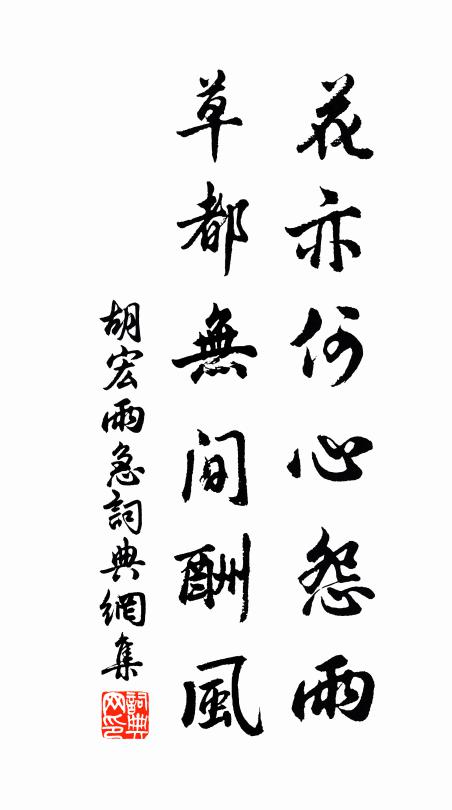 花亦何心怨雨
草都無間酬風
胡宏雨急詞典網集
詞典网印